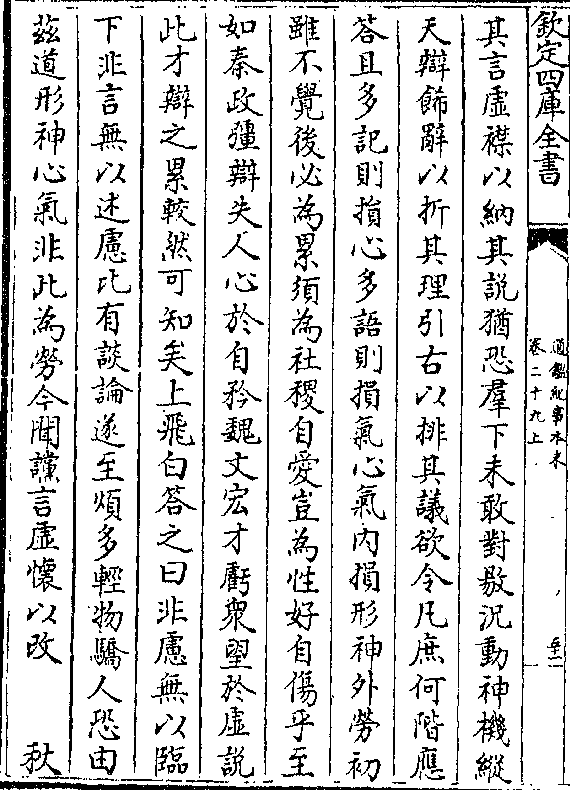 欽定四庫全書
通鑑紀事本末
卷二十九上
其言虛襟以納其說猶恐羣下未敢對敭況動神機縱
天辯飾辭以折其理引古以排其議欲令凡庶何階應
答且多記則損心多語則損氣心氣内損形神外勞初
雖不覺後必為累須為社稷自愛豈為性好自傷乎至
如秦政彊辯失人心於自矜魏文宏才虧衆望於虛說
此才辯之累較然可知矣上飛白答之曰非慮無以臨
下非言無以述慮比有談論遂至煩多輕物驕人恐由
茲道形神心氣非此為勞今聞讜言虛懷以改 秋